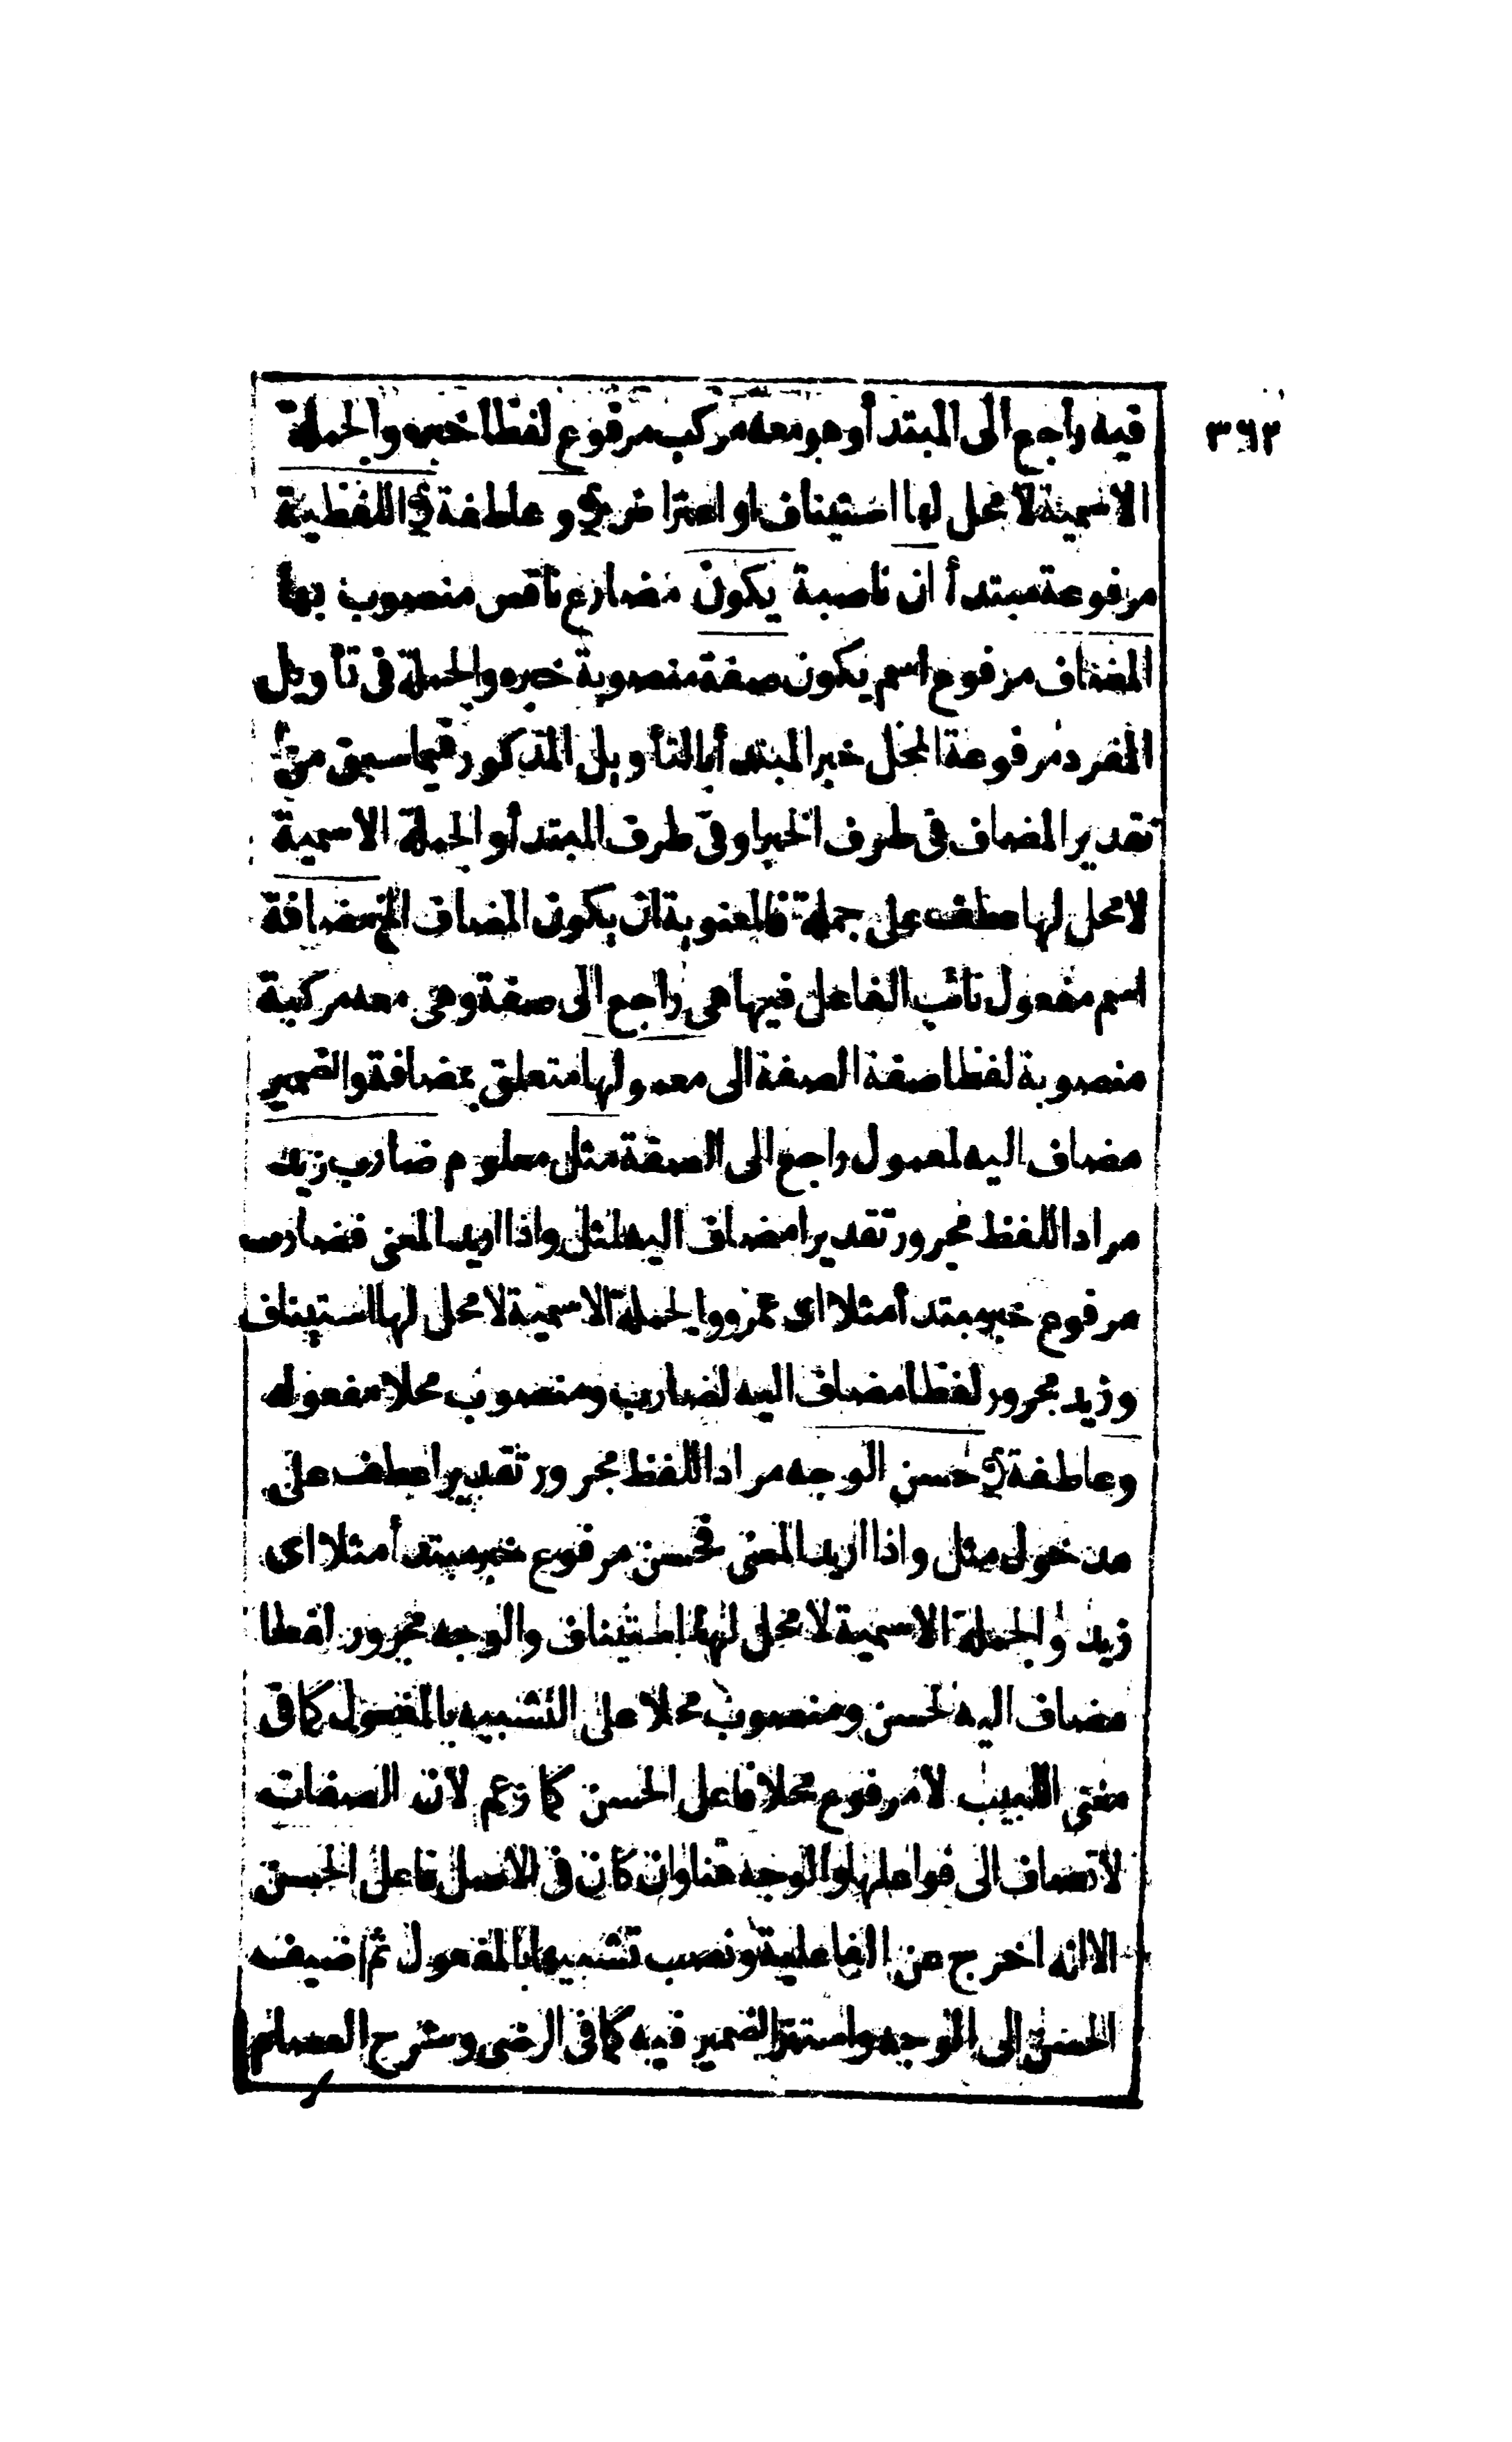 ٣٦٣
فيه راجع الى المبتدأ وهو معه مركب مرفوع لفظا خبره والجملة
الاسمية لا محل لها استيناف او اعتراض و عاطفة اللفظية
مرفوعة مبتدأ ان ناصبة يكون مضارع ناقص منصوب بها
المضاف مرفوع اسم يكون صفة منصوبة خبره والجملة فى تأويل
المفرد مرفوعة المحل خبر المبتدأ بالتأويل المذكور فيما سبق من
تقدير المضاف فى طرف الخبر او فى طرف المبتدأ والجملة الاسمية
لا محل لها عطف على جملة فالمعنوية ان يكون المضاف الخ مضافة
اسم مفعول نائب الفاعل فيها هى راجع الى صفة وهى معه مركبة
منصوبة لفظا صفة الصفة الى معمولها متعلق بمضافة والضمير
مضاف اليه لمعمول راجع الى الصفة مثل معلوم ضارب زيد
مراد اللفظ مجرور تقديرا مضاف اليه لمثل واذا اريد المعنى فضارب
مرفوع خبر مبتدأ مثلا اى عمرو والجملة الاسمية لا محل لها استيناف
وزيد مجرور لفظا مضاف اليه لضارب ومنصوب محلا مفعوله
وعاطفة حسن الوجه مراد اللفظ مجرور تقديرا عطف على
مدخول مثل واذا اريد المعنى فحسن مرفوع خبر مبتدأ مثلا اى
زيد والجملة الاسمية لا محل لها استيناف والوجه مجرور لفظا
مضاف اليه لحسن ومنصوب محلا على التشبيه بالمفعول كما فى
مغنى اللبيب لا مرفوع محلا فاعل الحسن كما زعم لان الصفات
لا تضاف الى فواعلها والوجه هنا وان كان فى الاصل فاعل الحسن
الا انه اخرج عن الفاعلية ونصب تشبيها بالمفعول ثم اضيف
الحسن الى الوجه واستتر الضمير فيه كما فى الرضى وشرح العصام